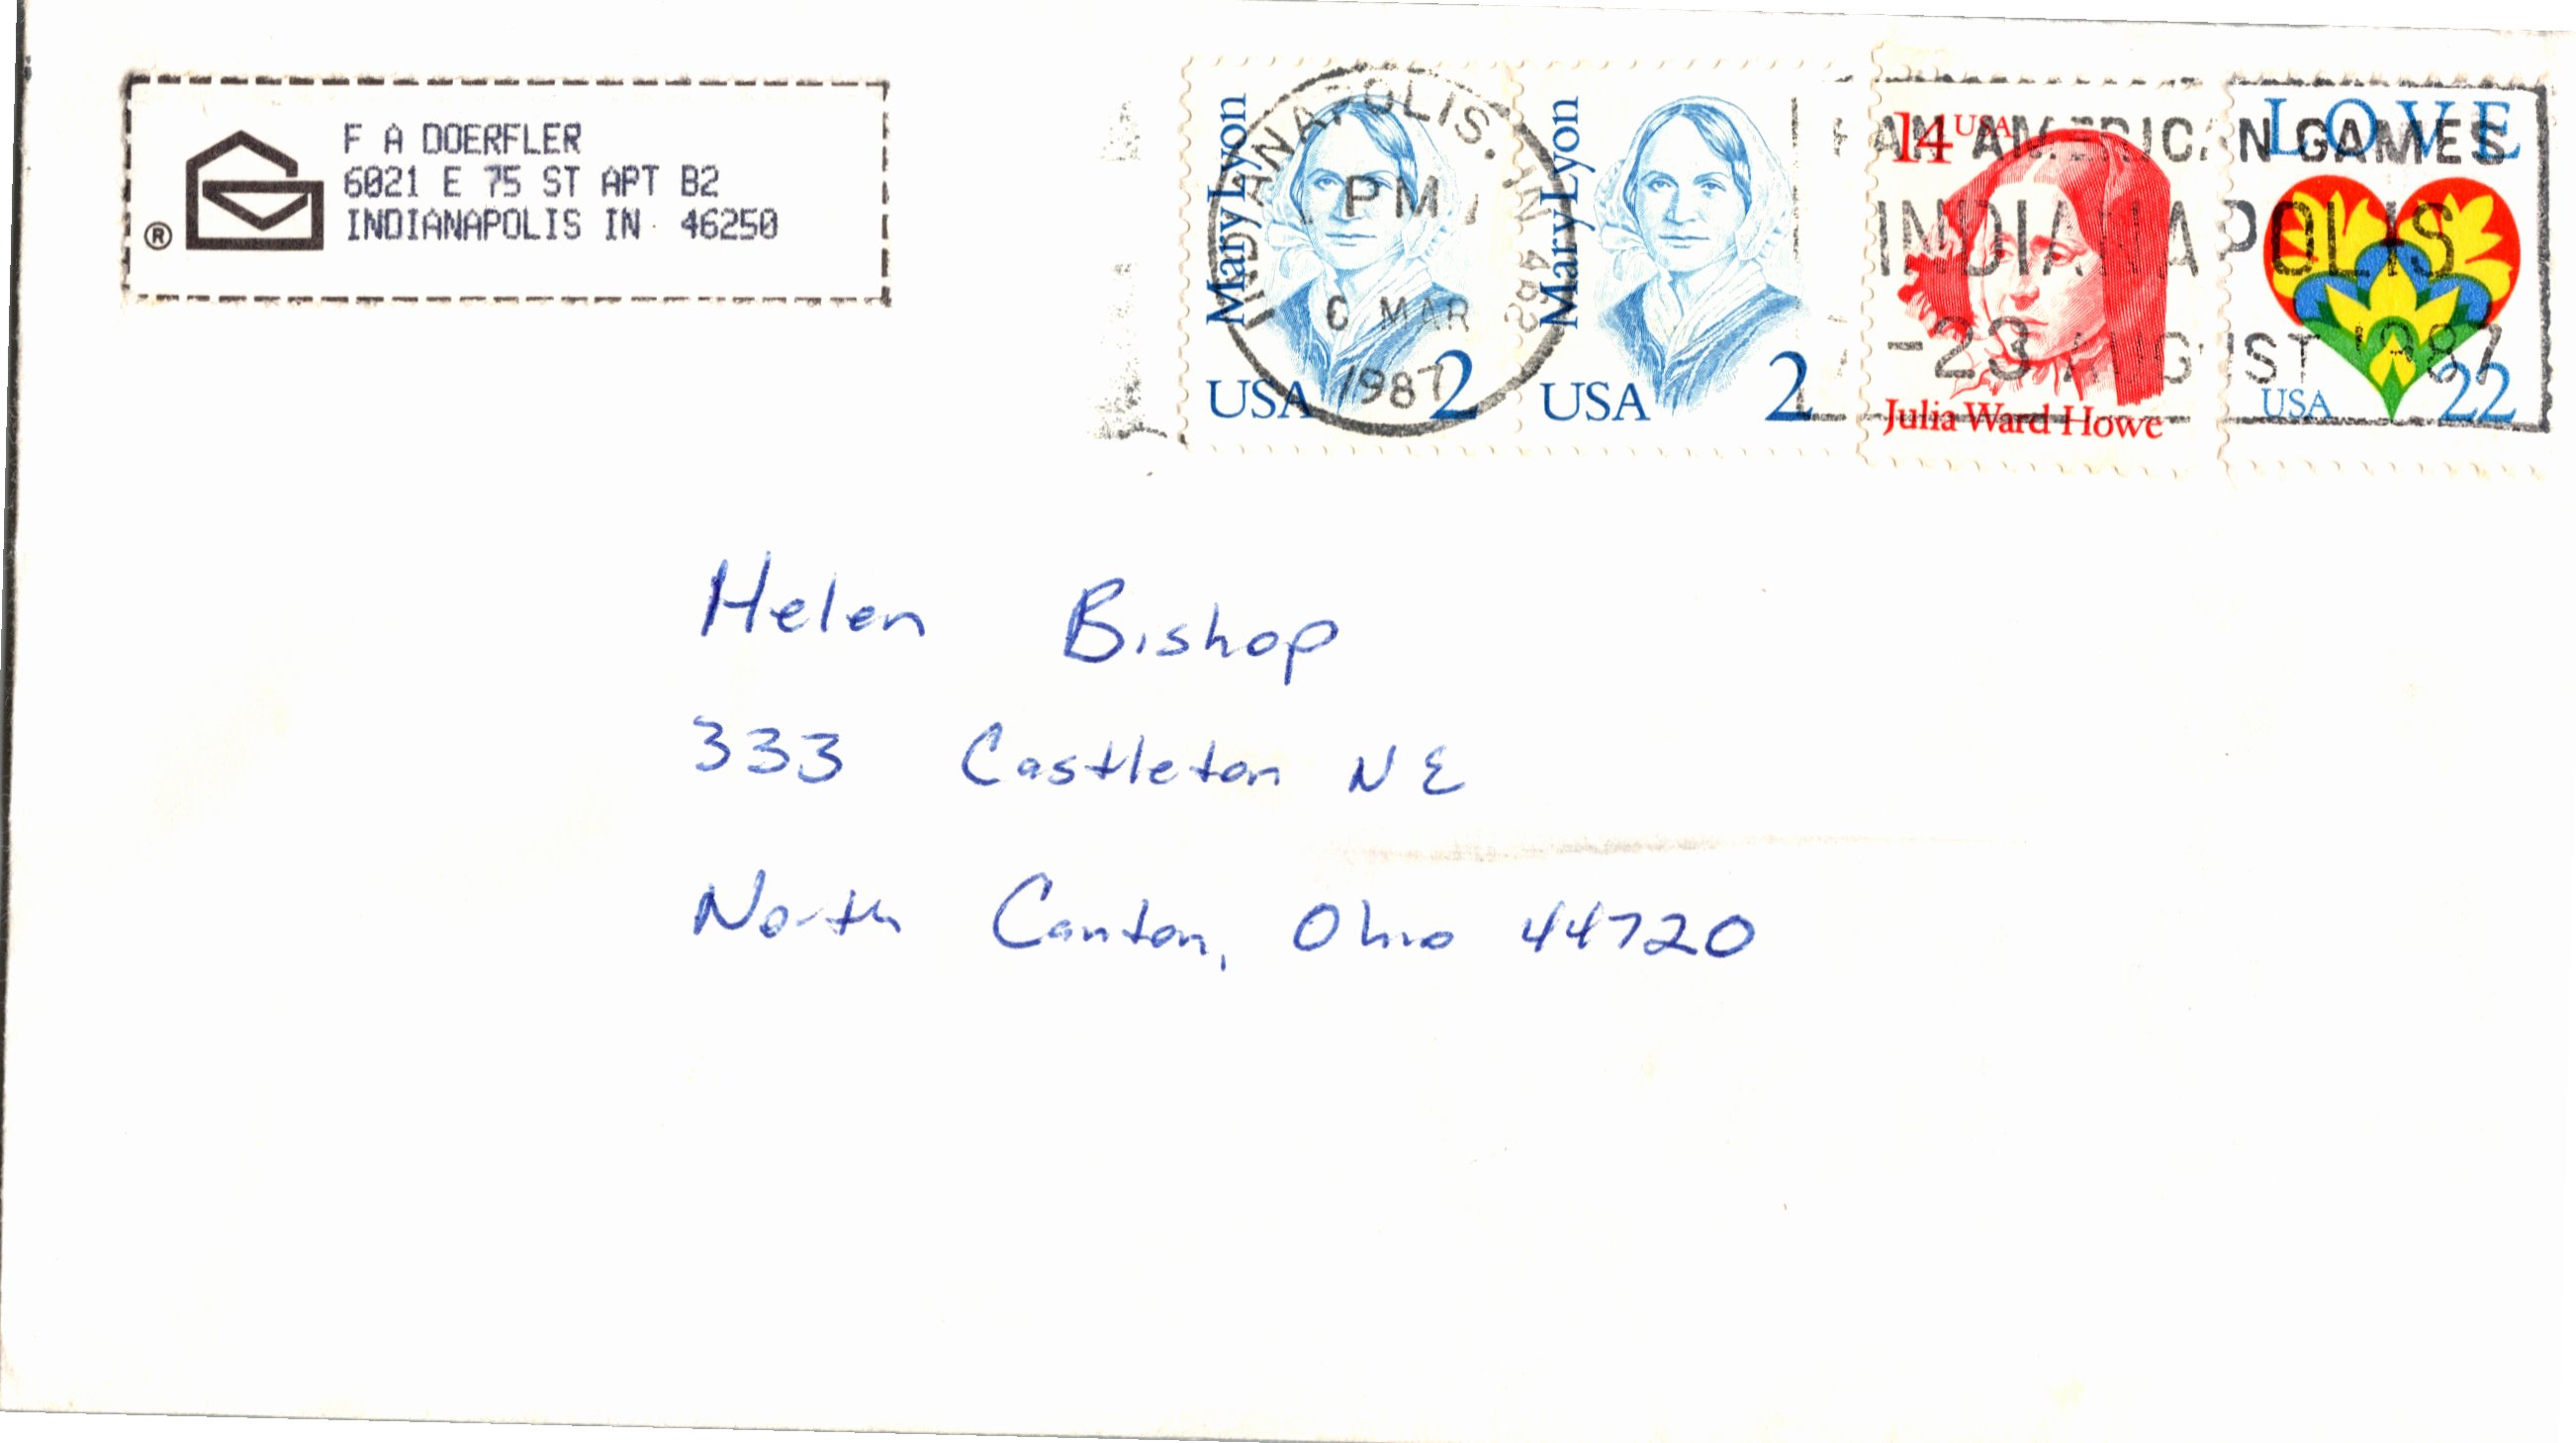 F A DOERFLER
6021 E 75 ST APT B2
INDIANAPOLIS IN 46250
®
Mary Lyon
USA 2
Mary Lyon
USA 2
14 USA
Julia Ward Howe
LOVE
USA 22
INDIANAPOLIS, IN 462
PM
6 MAR
1987
PAN AMERICAN GAMES
INDIANAPOLIS
-23 AUGUST 1987
Helen Bishop
333 Castleton NE
North Canton, Ohio 44720